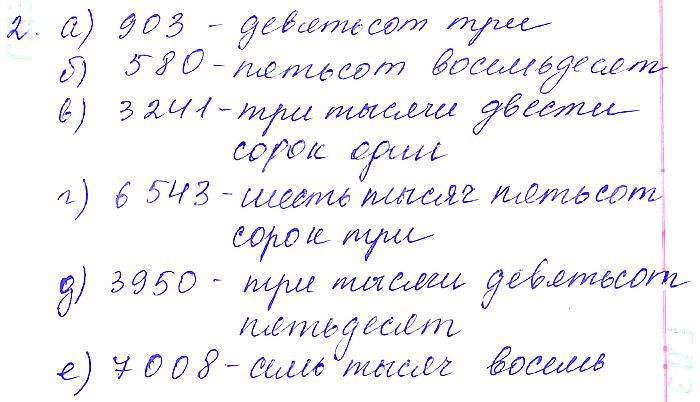 2. а) 903 - девятьсот три
б) 580 - пятьсот восемьдесят
в) 3241 - три тысячи двести
сорок один
г) 6543 - шесть тысяч пятьсот
сорок три
д) 3950 - три тысячи девятьсот
пятьдесят
е) 7008 - семь тысяч восемь